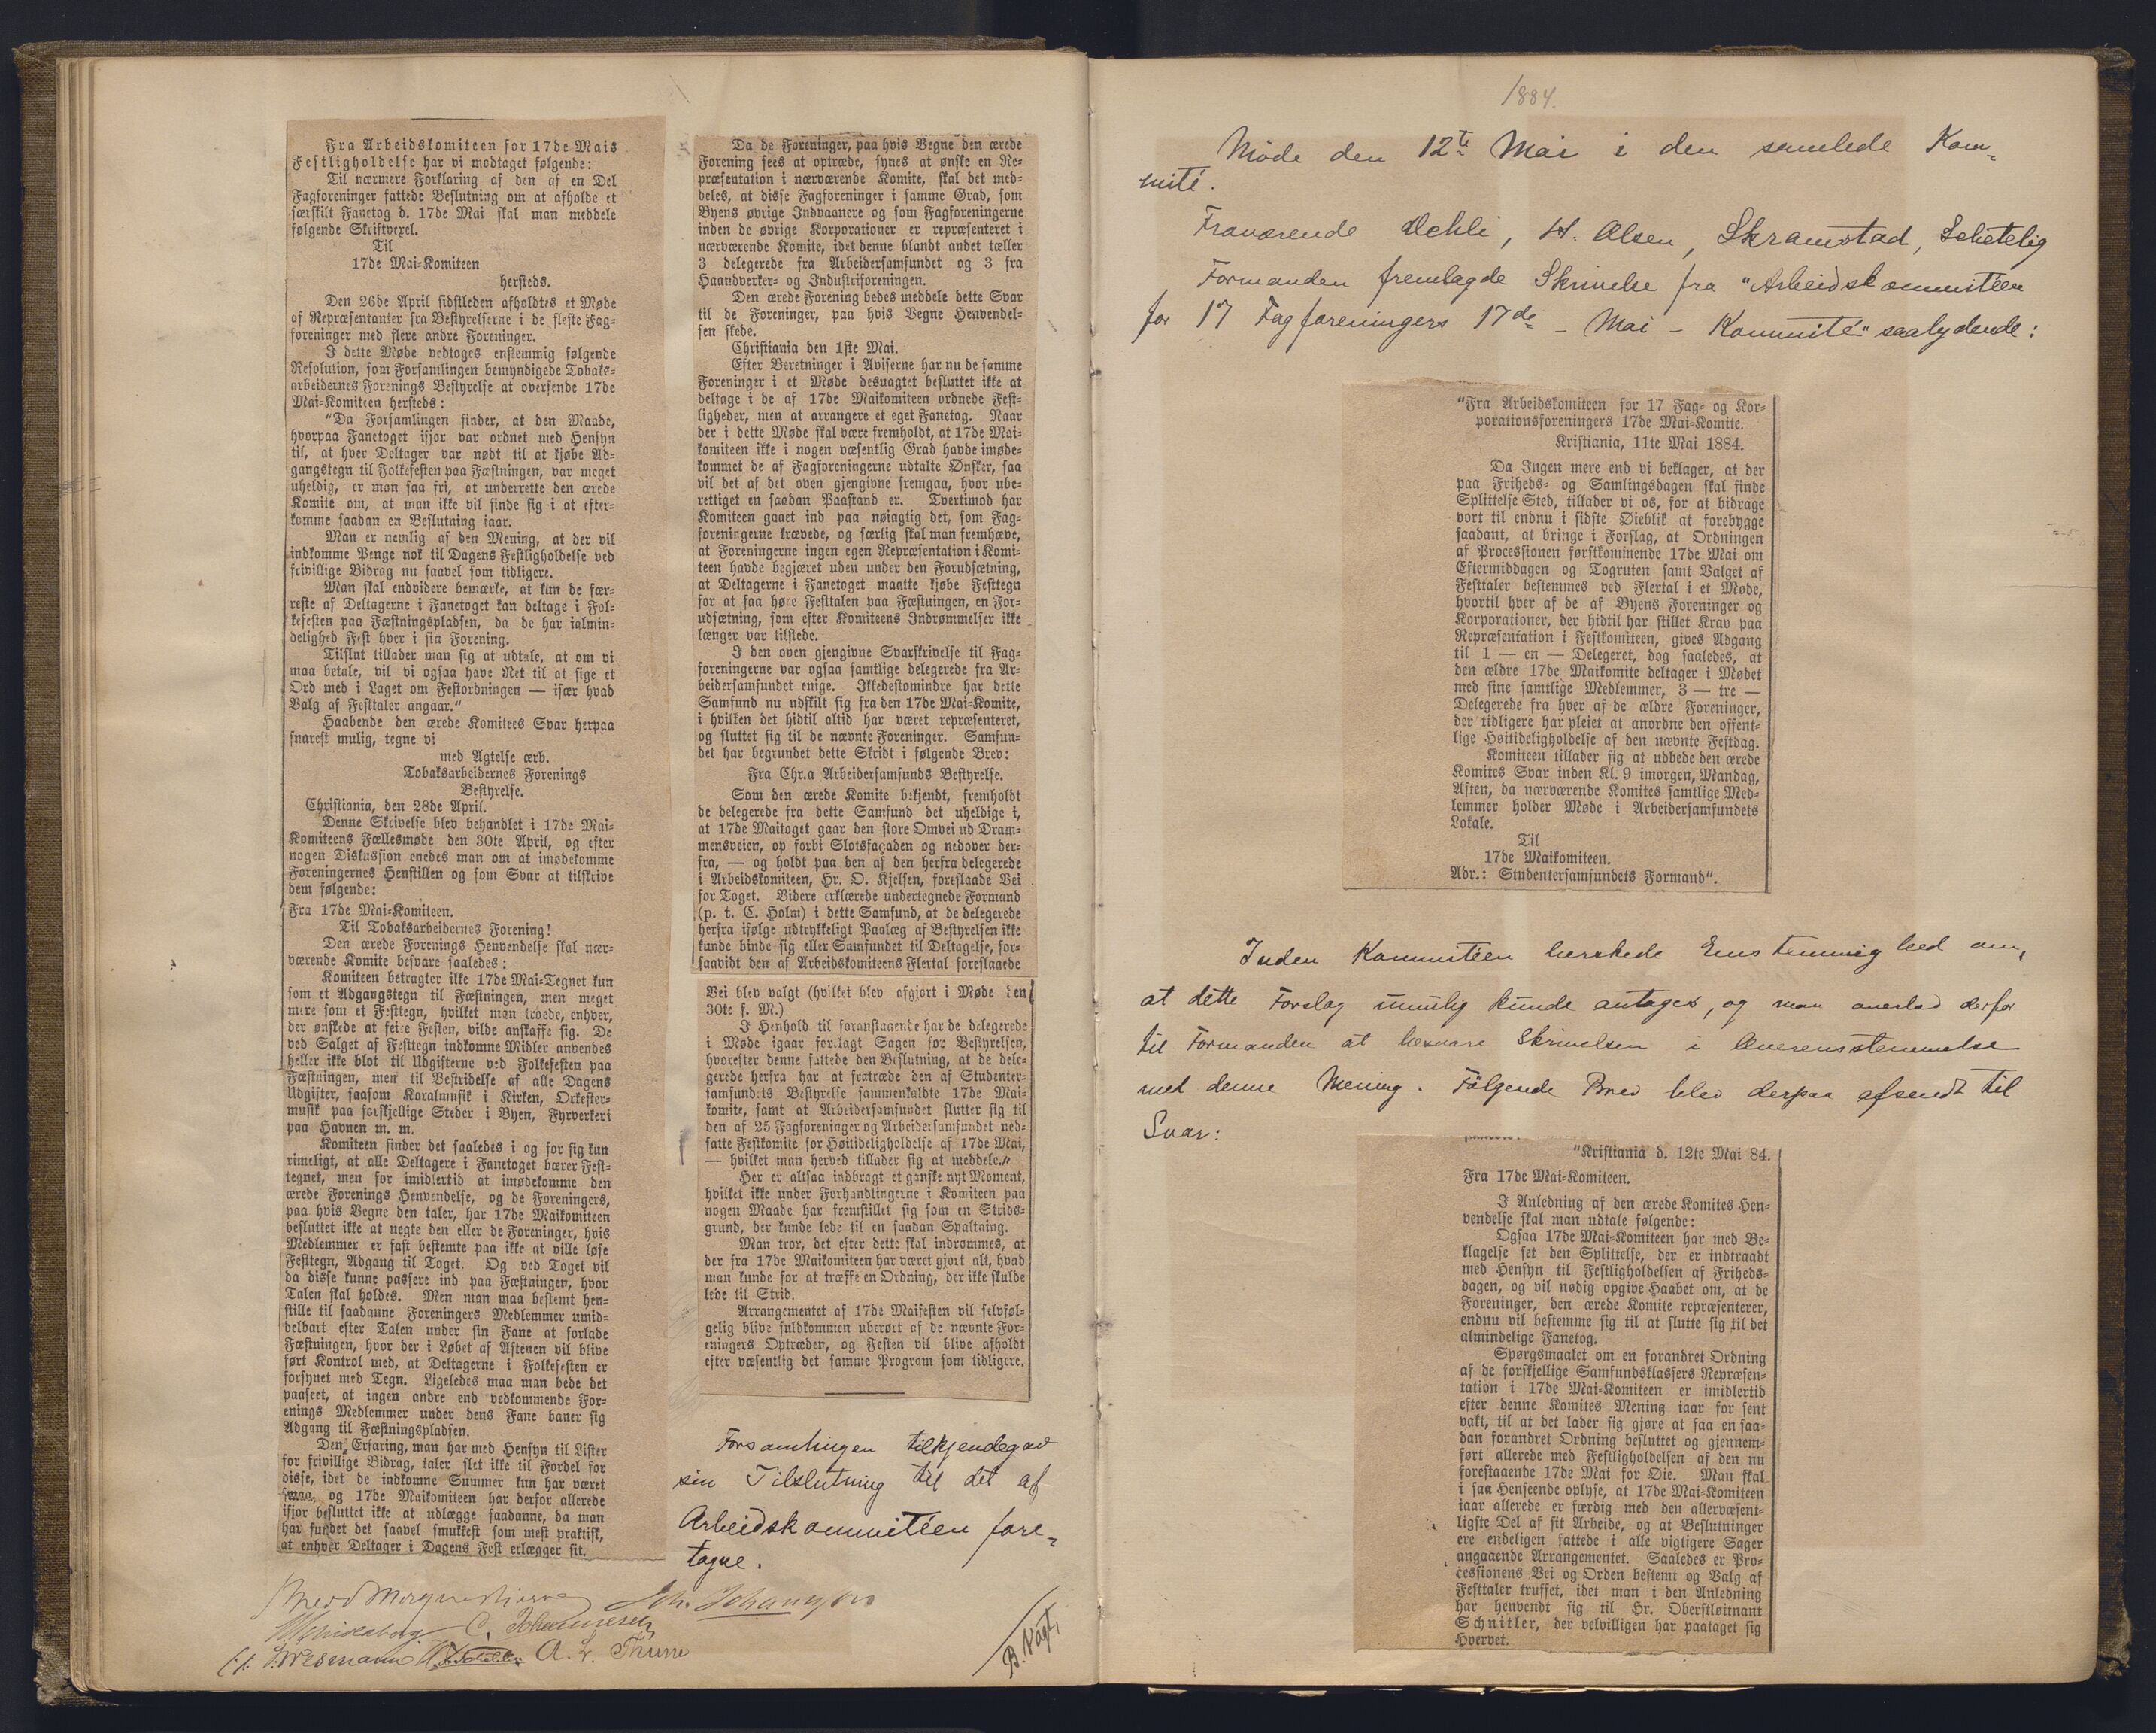 Fra Arbeidskomiteen for 17de Mais
Festligholdelse har vi modtaget følgende:
Til nærmere Forklaring af den af en Del
Fagforeninger fattede Beslutning om at afholde et
særskilt Fanetog d. 17de Mai skal man meddele
følgende Skriftvexel.
Til
17de Mai-Komiteen
hersteds.
Den 26de April sidstleden afholdtes et Møde
af Repræsentanter fra Bestyrelserne i de fleste Fag-
foreninger med flere andre Foreninger.
I dette Møde vedtoges enstemmig følgende
Resolution, som Forsamlingen bemyndigede Tobaks-
arbeidernes Forenings Bestyrelse at oversende 17de
Mai-Komiteen hersteds:
"Da Forsamlingen finder, at den Maade,
hvorpaa Fanetoget ifjor var ordnet med Hensyn
til, at hver Deltager var nødt til at kjøbe Ad-
gangstegn til Folkefesten paa Fæstningen, var meget
uheldig, er man saa fri, at underrette den ærede
Komite om, at man ikke vil finde sig i at efter-
komme saadan en Beslutning iaar.
Man er nemlig af den Mening, at der vil
indkomme Penge nok til Dagens Festligholdelse ved
frivillige Bidrag nu saavel som tidligere.
Man skal endvidere bemærke, at kun de fær-
reste af Deltagerne i Fanetoget kan deltage i Fol-
kefesten paa Fæstningspladsen, da de har ialmin-
delighed Fest hver i sin Forening.
Tilslut tillader man sig at udtale, at om vi
maa betale, vil vi ogsaa have Ret til at sige et
Ord med i Laget om Festordningen — især hvad
Valg af Festtaler angaar."
Haabende den ærede Komitees Svar herpaa
snarest mulig, tegne vi
med Agtelse ærb.
Tobaksarbeidernes Forenings
Bestyrelse.
Christiania, den 28de April.
Denne Skrivelse blev behandlet i 17de Mai-
Komiteens Fællesmøde den 30te April, og efter
nogen Diskussion enedes man om at imødekomme
Foreningernes Henstillen og som Svar at tilskrive
dem følgende:
Fra 17de Mai-Komiteen.
Til Tobaksarbeidernes Forening!
Den ærede Forenings Henvendelse skal nær-
værende Komite besvare saaledes:
Komiteen betragter ikke 17de Mai-Tegnet kun
som et Adgangstegn til Fæstningen, men meget
mere som et Festtegn, hvilket man troede, enhver,
der ønskede at feire Festen, vilde anskaffe sig. De
ved Salget af Festtegn indkomne Midler anvendes
heller ikke blot til Udgifterne ved Folkefesten paa
Fæstningen, men til Bestridelse af alle Dagens
Udgifter, saasom Koralmusik i Kirken, Orkester-
musik paa forskjellige Steder i Byen, Fyrverkeri
paa Havnen m. m.
Komiteen finder det saaledes i og for sig kun
rimeligt, at alle Deltagere i Fanetoget bærer Fest-
tegnet, men for imidlertid at imødekomme den
ærede Forenings Henvendelse, og de Foreningers,
paa hvis Vegne den taler, har 17de Maikomiteen
besluttet ikke at negte den eller de Foreninger, hvis
Medlemmer er fast bestemte paa ikke at ville løse
Festtegn, Adgang til Toget. Og ved Toget vil
da disse kunne passere ind paa Fæstningen, hvor
Talen skal holdes. Men man maa bestemt hen-
stille til saadanne Foreningers Medlemmer umid-
delbart efter Talen under sin Fane at forlade
Fæstningen, hvor der i Løbet af Aftenen vil blive
ført Kontrol med, at Deltagerne i Folkefesten er
forsynet med Tegn. Ligeledes maa man bede det
paaseet, at ingen andre end vedkommende For-
enings Medlemmer under dens Fane baner sig
Adgang til Fæstningspladsen.
Den Erfaring, man har med Hensyn til Lister
for frivillige Bidrag, taler slet ikke til Fordel for
disse, idet de indkomne Summer kun har været
smaa, og 17de Maikomiteen har derfor allerede
ifjor besluttet ikke at udlægge saadanne, da man
har fundet det saavel smukkest som mest praktisk,
at enhver Deltager i Dagens Fest erlægger sit.
Da de Foreninger, paa hvis Vegne den ærede
Forening sees at optræde, synes at ønske en Re-
præsentation i nærværende Komite, skal det med-
deles, at disse Fagforeninger i samme Grad, som
Byens øvrige Indvaanere og som Fagforeningerne
inden de øvrige Korporationer er repræsenteret i
nærværende Komite, idet denne blandt andet tæller
3 delegerede fra Arbeidersamfundet og 3 fra
Haandverker- og Industriforeningen.
Den ærede Forening bedes meddele dette Svar
til de Foreninger, paa hvis Vegne Henvendel-
sen skede.
Christiania den 1ste Mai.
Efter Beretninger i Aviserne har nu de samme
Foreninger i et Møde desuagtet besluttet ikke at
deltage i de af 17de Maikomiteen ordnede Fest-
ligheder, men at arrangere et eget Fanetog. Naar
der i dette Møde skal være fremholdt, at 17de Mai-
komiteen ikke i nogen væsentlig Grad havde imøde-
kommet de af Fagforeningerne udtalte Ønsker, saa
vil det af det oven gjengivne fremgaa, hvor ube-
rettiget en saadan Paastand er. Tvertimod har
Komiteen gaaet ind paa nøiagtig det, som Fag-
foreningerne krævede, og særlig skal man fremhæve,
at Foreningerne ingen egen Repræsentation i Komi-
teen havde begjæret uden under den Forudsætning,
at Deltagerne i Fanetoget maatte kjøbe Festtegn
for at faa høre Festtalen paa Fæstningen, en For-
udsætning, som efter Komiteens Indrømmelser ikke
længer var tilstede.
I den oven gjengivne Svarskrivelse til Fag-
foreningerne var ogsaa samtlige delegerede fra Ar-
beidersamfundet enige. Ikkedestomindre har dette
Samfund nu udskilt sig fra den 17de Mai-Komite,
i hvilken det hidtil altid har været repræsenteret,
og sluttet sig til de nævnte Foreninger. Samfun-
det har begrundet dette Skridt i følgende Brev:
Fra Chr.a Arbeidersamfunds Bestyrelse.
Som den ærede Komite bekjendt, fremholdt
de delegerede fra dette Samfund det uheldige i,
at 17de Maitoget gaar den store Omvei ud Dram-
mensveien, op forbi Slotsfaçaden og nedover der-
fra, — og holdt paa den af den herfra delegerede
i Arbeidskomiteen, Hr. O. Kjelsen, foreslaade Vei
for Toget. Videre erklærede undertegnede Formand
(p. t. C. Holm) i dette Samfund, at de delegerede
herfra ifølge udtrykkeligt Paalæg af Bestyrelsen ikke
kunde binde sig eller Samfundet til Deltagelse, for-
saavidt den af Arbeidskomiteens Flertal foreslaaede
Vei blev valgt (hvilket blev afgjort i Møde den
30te f. M.)
I Henhold til foranstaaende har de delegerede
i Møde igaar forelagt Sagen for Bestyrelsen,
hvorefter denne fattede den Beslutning, at de dele-
gerede herfra har at fratræde den af Studenter-
samfundets Bestyrelse sammenkaldte 17de Mai-
komite, samt at Arbeidersamfundet slutter sig til
den af 25 Fagforeninger og Arbeidersamfundet ned-
satte Festkomite for Høitideligholdelse af 17de Mai,
— hvilket man herved tillader sig at meddele."
Her er altsaa indbragt et ganske nyt Moment,
hvilket ikke under Forhandlingerne i Komiteen paa
nogen Maade har fremstillet sig som en Strids-
grund, der kunde lede til en saadan Spaltning.
Man tror, det efter dette skal indrømmes, at
der fra 17de Maikomiteen har været gjort alt, hvad
man kunde for at træffe en Ordning, der ikke skulde
lede til Strid.
Arrangementet af 17de Maifesten vil selvføl-
gelig blive fuldkommen uberørt af de nævnte For-
eningers Optræden, og Festen vil blive afholdt
efter væsentlig det samme Program som tidligere.
Forsamlingen tilkjendegav
sin Tilslutning til det af
Arbeidskommitéen fore-
tagne.
C. Johannesen
A. L. Thune
B. Vogt,
1884.
Möde den 12te Mai i den samlede Kom-
mité.
Fraværende Dehli, H. Olsen, Skramstad, Schetelig
Formanden fremlagde Skrivelse fra "Arbeidskommitéen
for 17 Fagforeningers 17de - Mai - Kommité" saalydende:
"Fra Arbeidskomiteen for 17 Fag- og Kor-
porationsforeningers 17de Mai-Komite.
Kristiania, 11te Mai 1884.
Da Ingen mere end vi beklager, at der
paa Friheds- og Samlingsdagen skal finde
Splittelse Sted, tillader vi os, for at bidrage
vort til endnu i sidste Øieblik at forebygge
saadant, at bringe i Forslag, at Ordningen
af Processionen førstkommende 17de Mai om
Eftermiddagen og Togruten samt Valget af
Festtaler bestemmes ved Flertal i et Møde,
hvortil hver af de af Byens Foreninger og
Korporationer, der hidtil har stillet Krav paa
Repræsentation i Festkomiteen, gives Adgang
til 1 — en — Delegeret, dog saaledes, at
den ældre 17de Maikomite deltager i Mødet
med sine samtlige Medlemmer, 3 — tre —
Delegerede fra hver af de ældre Foreninger,
der tidligere har pleiet at anordne den offent-
lige Høitideligholdelse af den nævnte Festdag.
Komiteen tillader sig at udbede den ærede
Komites Svar inden Kl. 9 imorgen, Mandag,
Aften, da nærværende Komites samtlige Med-
lemmer holder Møde i Arbeidersamfundets
Lokale.
Til
17de Maikomiteen.
Adr.: Studentersamfundets Formand".
Inden Kommitéen herskede Enstemmighed om,
at dette Forslag umulig kunde antages, og man overlod derfor
til Formanden at besvare Skrivelsen i Overensstemmelse
med denne Mening. Fölgende Brev blev derpaa afsendt til
Svar:
"Kristiania d. 12te Mai 84.
Fra 17de Mai-Komiteen.
I Anledning af den ærede Komites Hen-
vendelse skal man udtale følgende:
Ogsaa 17de Mai-Komiteen har med Be-
klagelse set den Splittelse, der er indtraadt
med Hensyn til Festligholdelsen af Friheds-
dagen, og vil nødig opgive Haabet om, at de
Foreninger, den ærede Komite repræsenterer,
endnu vil bestemme sig til at slutte sig til det
almindelige Fanetog.
Spørgsmaalet om en forandret Ordning
af de forskjellige Samfundsklassers Repræsen-
tation i 17de Mai-Komiteen er imidlertid
efter denne Komites Mening iaar for sent
vakt, til at det lader sig gjøre at faa en saa-
dan forandret Ordning besluttet og gjennem-
ført allerede med Festligholdelsen af den nu
forestaaende 17de Mai for Øie. Man skal
i saa Henseende oplyse, at 17de Mai-Komiteen
iaar allerede er færdig med den allervæsent-
ligste Del af sit Arbeide, og at Beslutninger
ere endeligen fattede i alle vigtigere Sager
angaaende Arrangementet. Saaledes er Pro-
cessionens Vei og Orden bestemt og Valg af
Festtaler truffet, idet man i den Anledning
har henvendt sig til Hr. Oberstløitnant
Schnitler, der velvilligen har paataget sig
Hvervet.